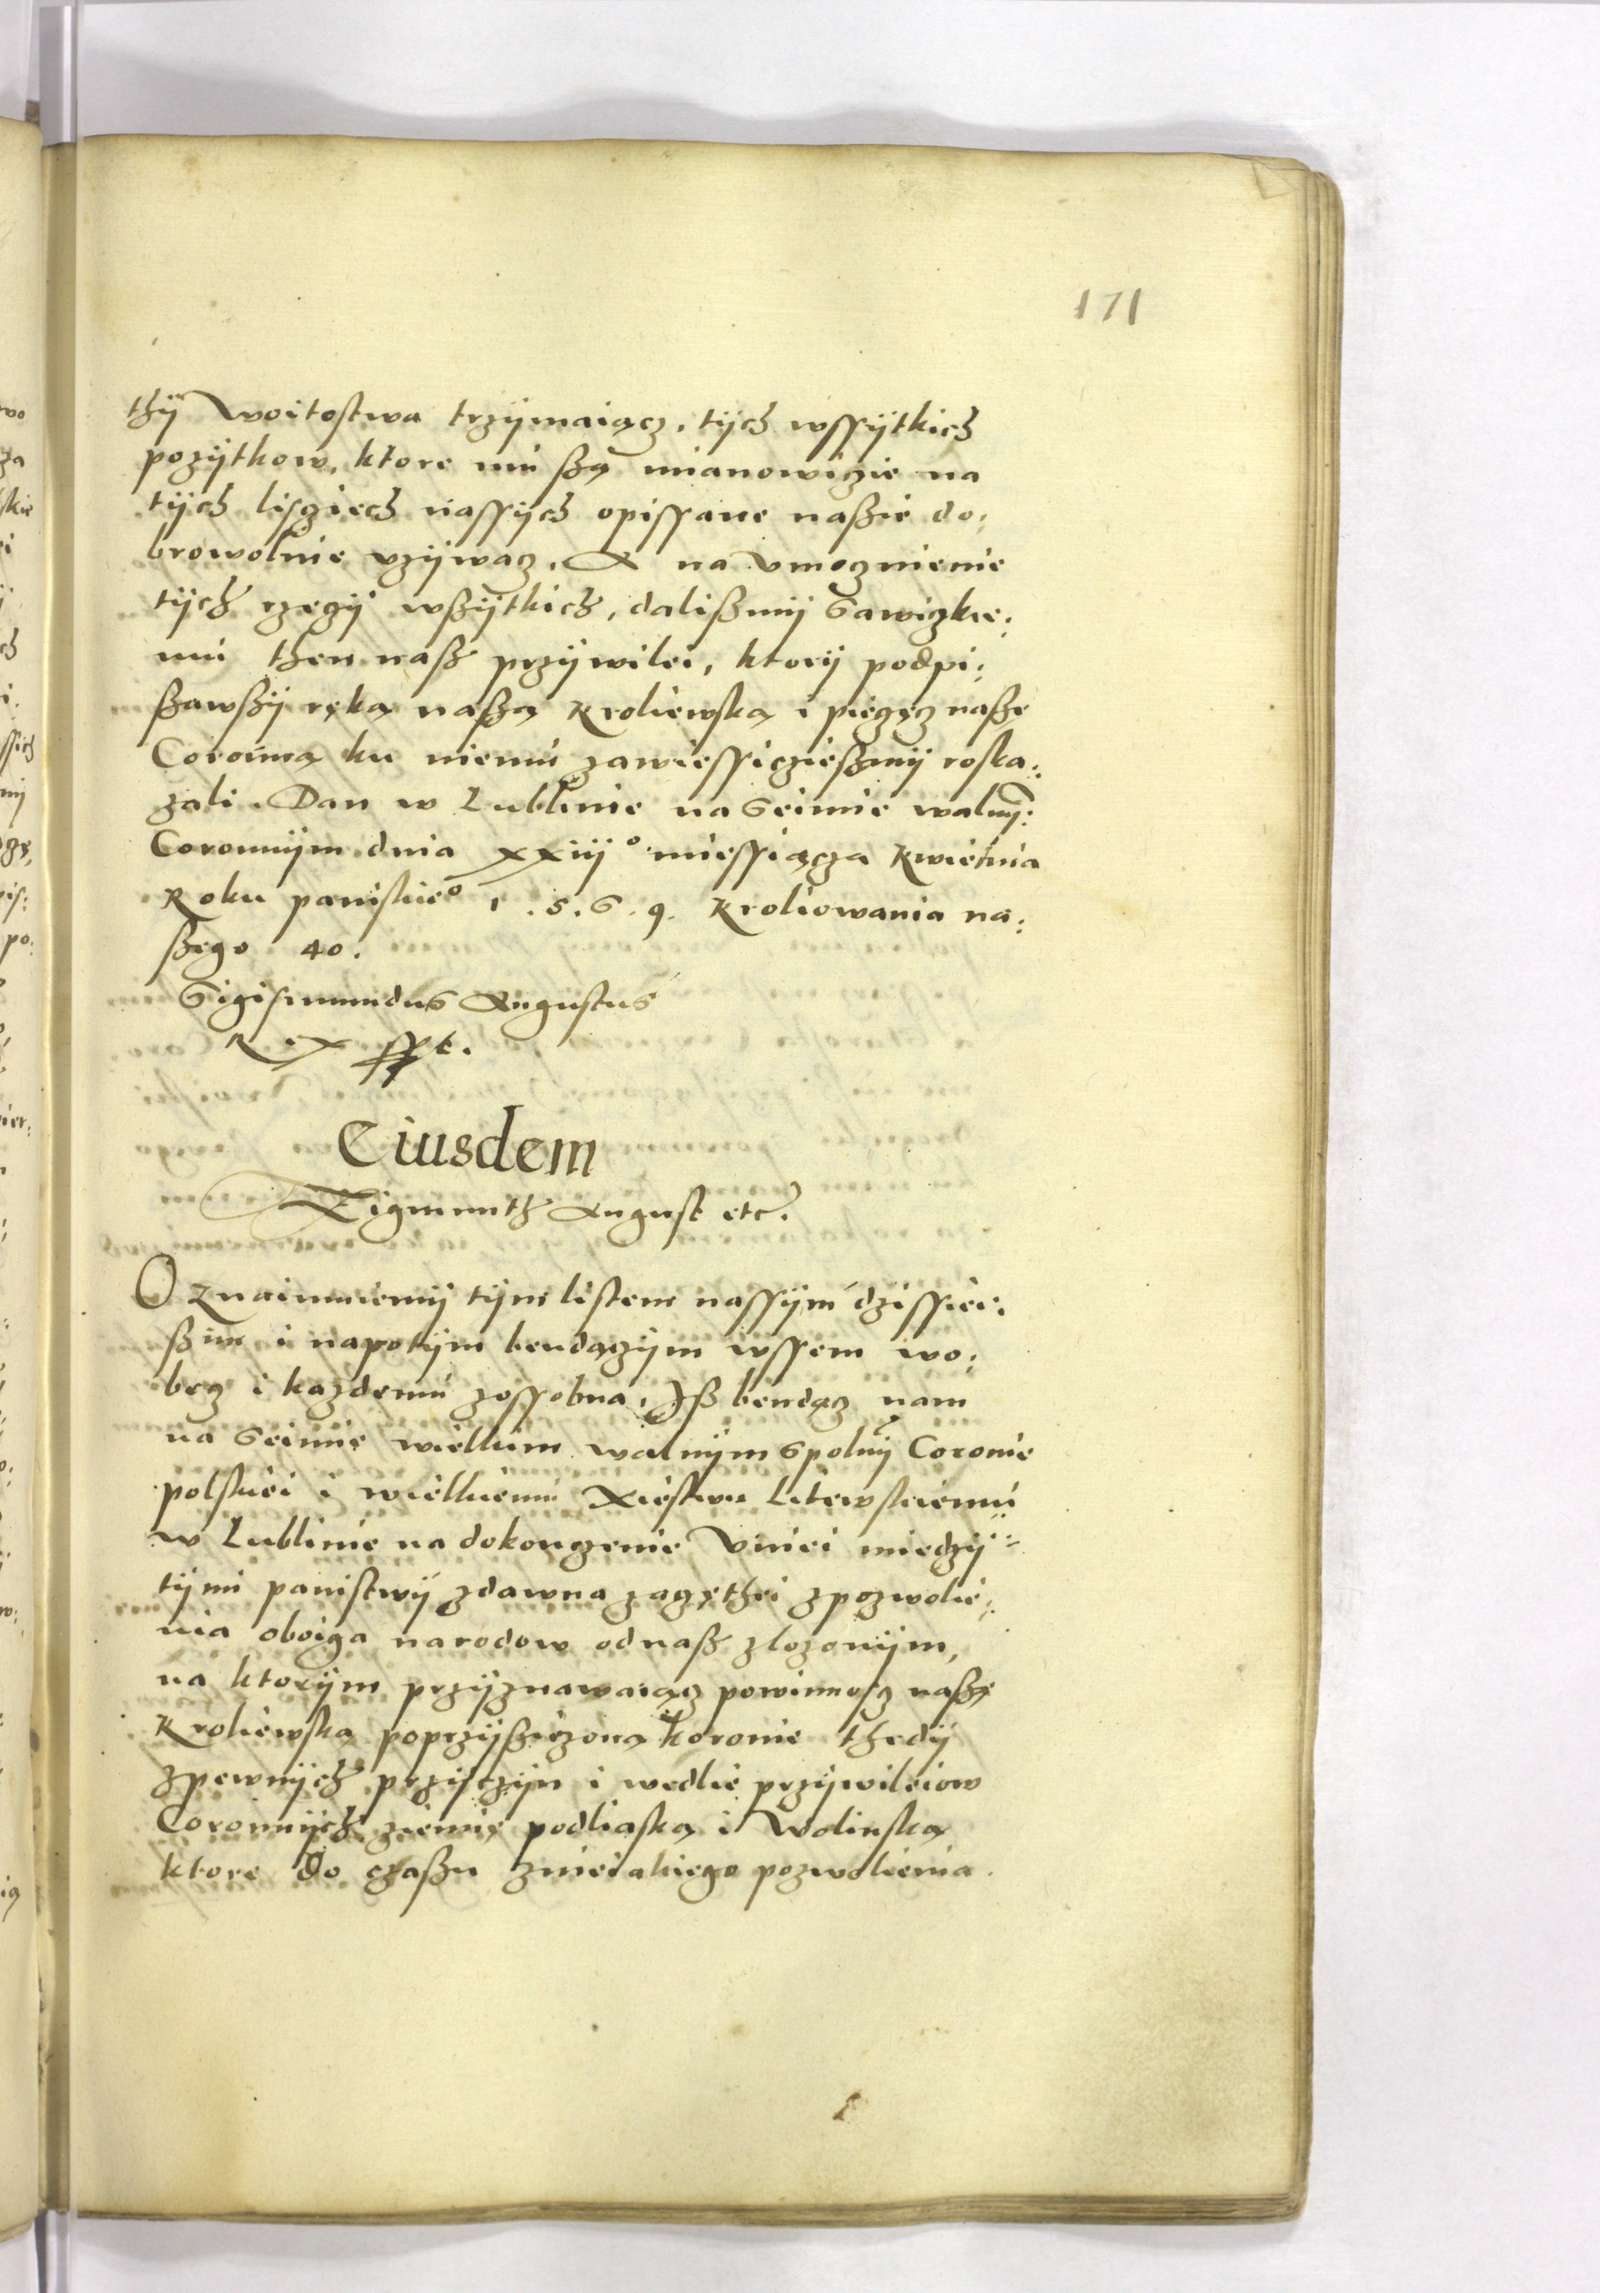 171
thÿ woitostwa trzÿmaiącz, tÿch wssÿtkich
pozÿtkow, ktore mu ßą mianowiczie na
tÿch lisciech nassÿch opissane naßie do:
browolnie vzÿwacz. A na vmocznienie
tÿch rzeczÿ wßÿtkich, dalißmÿ Sawiczkie:
mu then naß przÿwilei, ktorÿ podpi:
ßawßÿ ręką naßą Kroliewską i pieczęcz naße
Coronną ku niemu zawiessiczießmÿ roska:
zali. Dan w Lublinie na Seimie walnÿ:
Coronnÿm dnia xxiiij° miessiącza Kwietnia
Roku panskie° 1.5.6.9. Kroliowania na:
ßego 40.
Sigismundus Augustus
Rex sspt.
Eiusdem
Zigmunth August etc.
Oznaimuiemÿ tÿm listem nassÿm dzissiei:
ßim i napotÿm bendączÿm wssem wo:
becz i kazdemu zossobna, Iß bendącz nam
na Seimie wielkim walnÿm spolnÿ Coronie
polskiei i wielkiemu Xiestwu Litewskiemu
w Lublinie na dokonczenie Vniei miedzÿ
tÿmi panstwÿ zdawna zaczęthei zpozwolie:
nia oboiga narodow odnaß zlozonÿm,
na ktorÿm przÿznawaiącz powinnoscz naßą
Kroliewską poprzÿßiezoną koronie thedÿ
zpewnÿch przisczÿn i wedlie przÿwileiow
Coronnÿch ziemię podliaską i Wolinską
ktore do czaßu znieiakiego pozwolienia